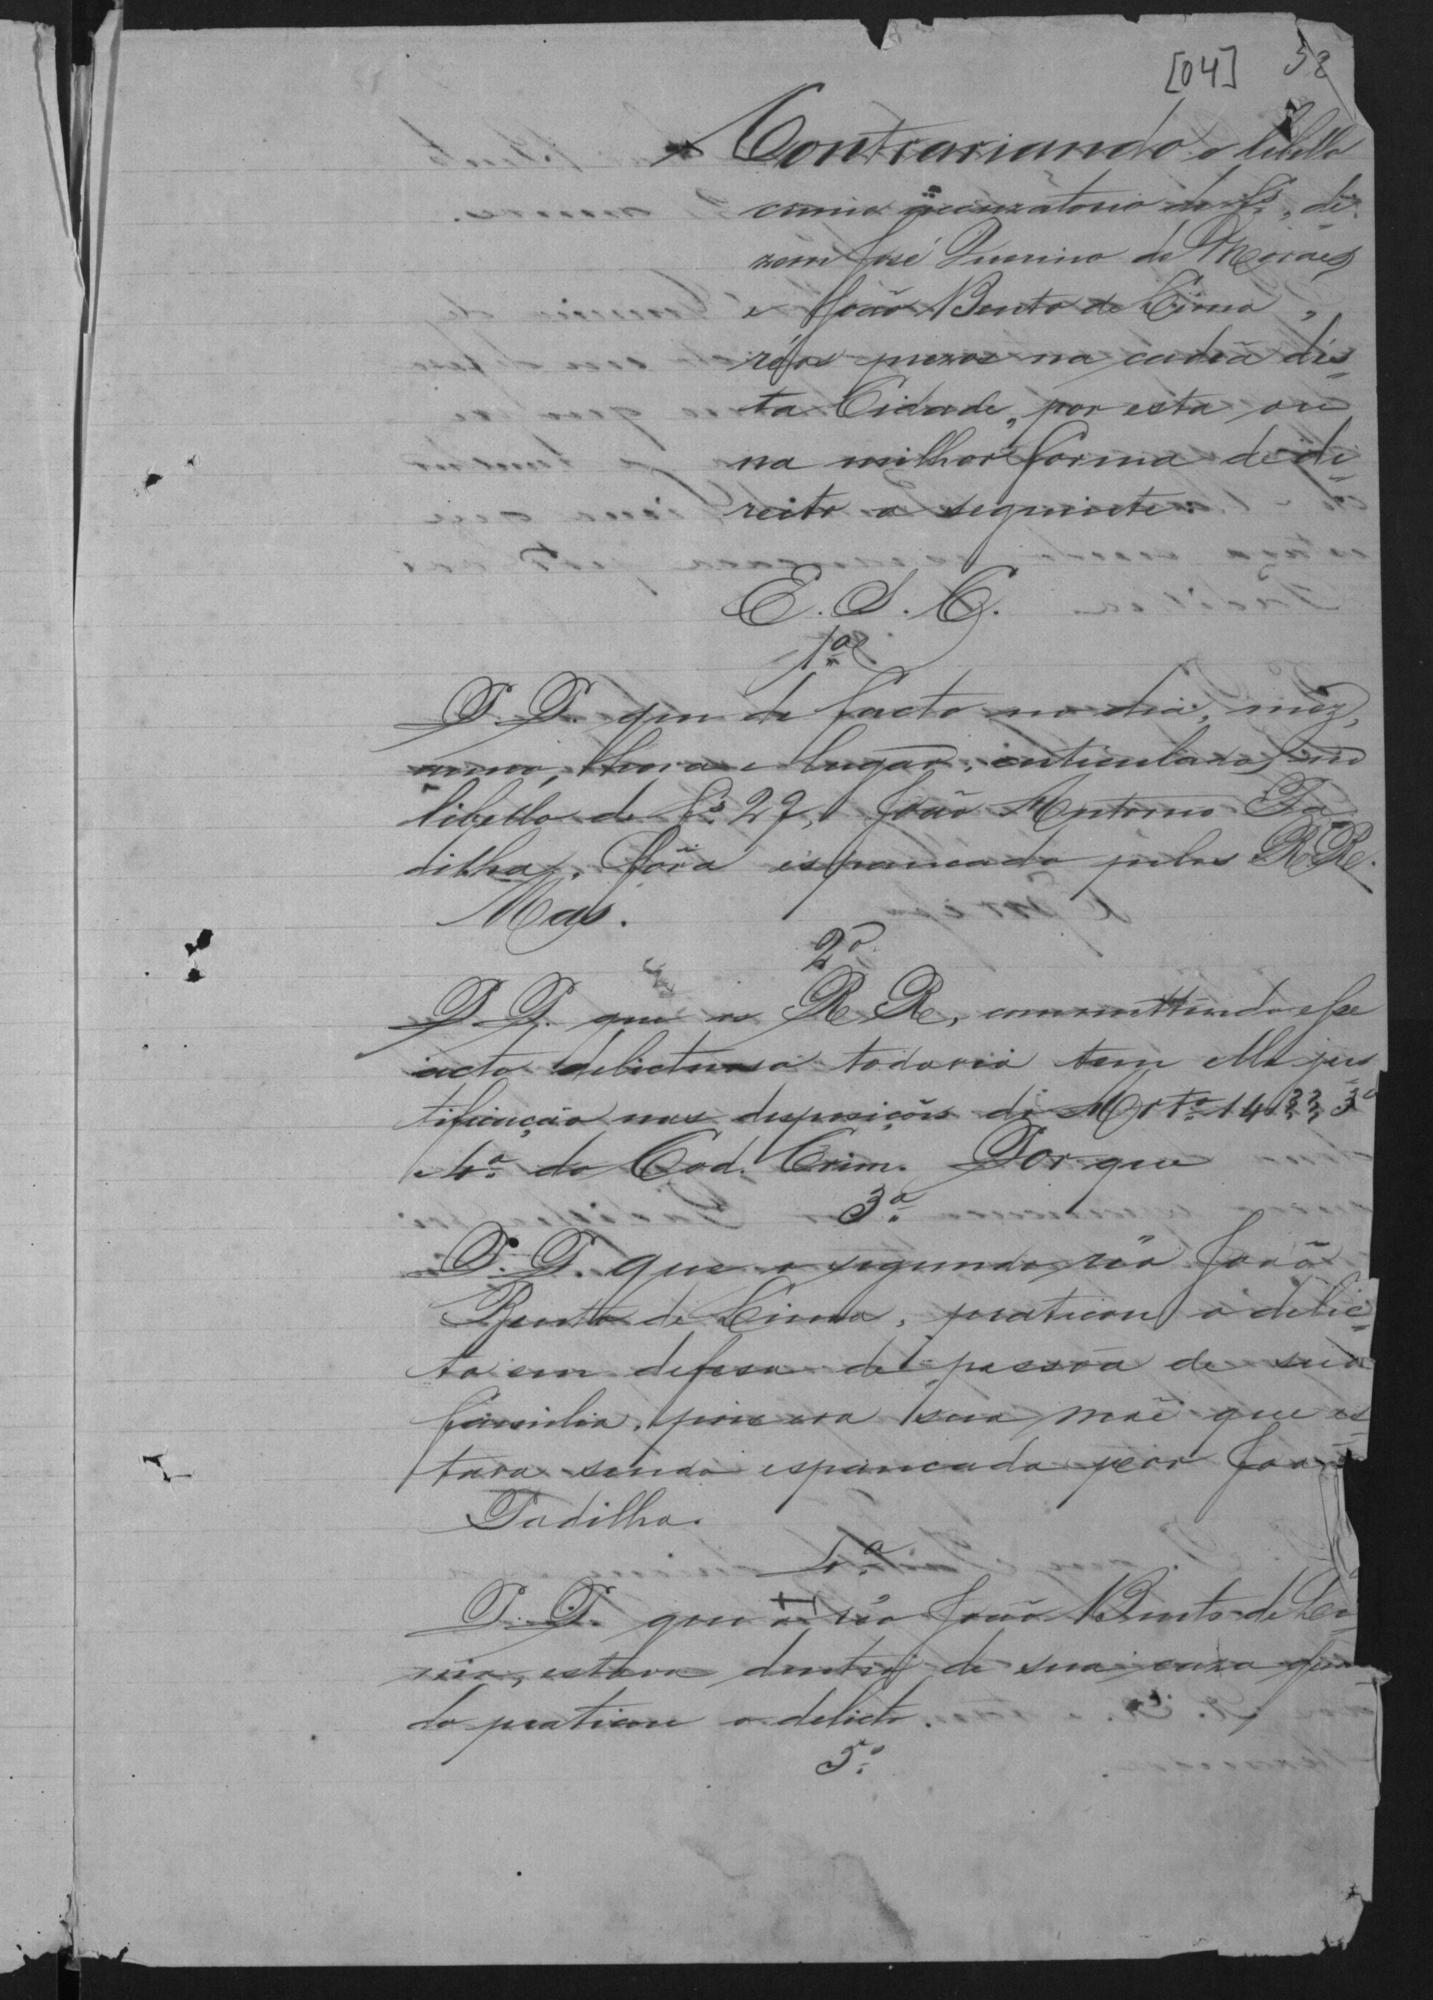 [04] 38
Contrariando o libello
crime accuzatorio de fs, di-
zem José Querino de Moraes
e João Bento de Lima,
réos prezos na cadeia des-
ta Cidade, por esta ou
na milhor forma de di-
reito o seguinte.
E. S. C.
1º
P. P. que de facto no dia, mez,
anno, hora e lugar, articulados no
libello de fs 27, João Antonio Pa-
dilha, fôra espancado pelos RR.
Mas.
2º
P. P. que os RR, commettendo esse
acto delictuoso todavia tem elle jus-
tificação nas desposições do Arto 14 §§ 3º
4º do Cod. Crim. Por que
3º
P. P. que o segundo réo João
Bento de Lima, praticou o delic-
to em defesa de pessoa de sua
familia, pois era sua mãe que es-
tava sendo espancada por João
Padilha.
4º
P. P. que o réo João Bento de Li-
ma, estava dentro de sua caza quan-
do praticou o delicto.
5º